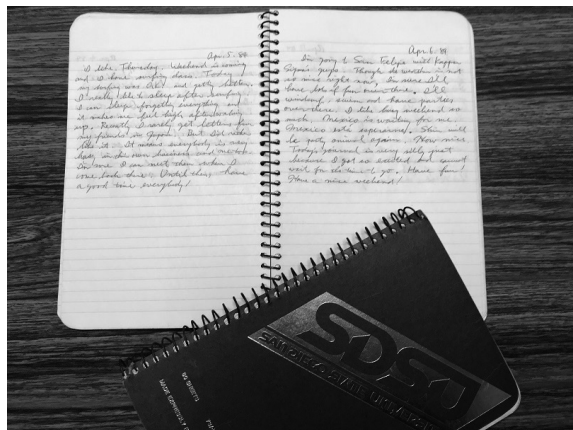 Apr. 5. '89
I like Thursday. Weekend is coming
and I have surfing class. Today
my surfing was and getting better.
I really like to sleep after surfing.
I can sleep forgetting everything and
it makes me feel high after waking
up. Recently I really get letters from
my friends in Japan. But I don't
like it. It means everybody is very
busy in the new business and
I can meet them when I
come back there. Until then, have
a good time everybody!
Apr. 6. '89
I'm going to San Felipe with Kappa
Sigma's guys. Though the weather is not
so nice right now, I'm sure I'll
have lots of fun down there. I'll
swim and have parties
over there. I like long weekend so
much. Mexico is waiting for me.
Mexico está esperando. She will
be party animal again. How nice
Today's journal is very silly just
because I got so excited and cannot
wait for the time to go. Have fun!
Have a nice weekend!
SDSU
SAN DIEGO STATE UNIVERSITY
SHEETS
MADE EXPRESSLY